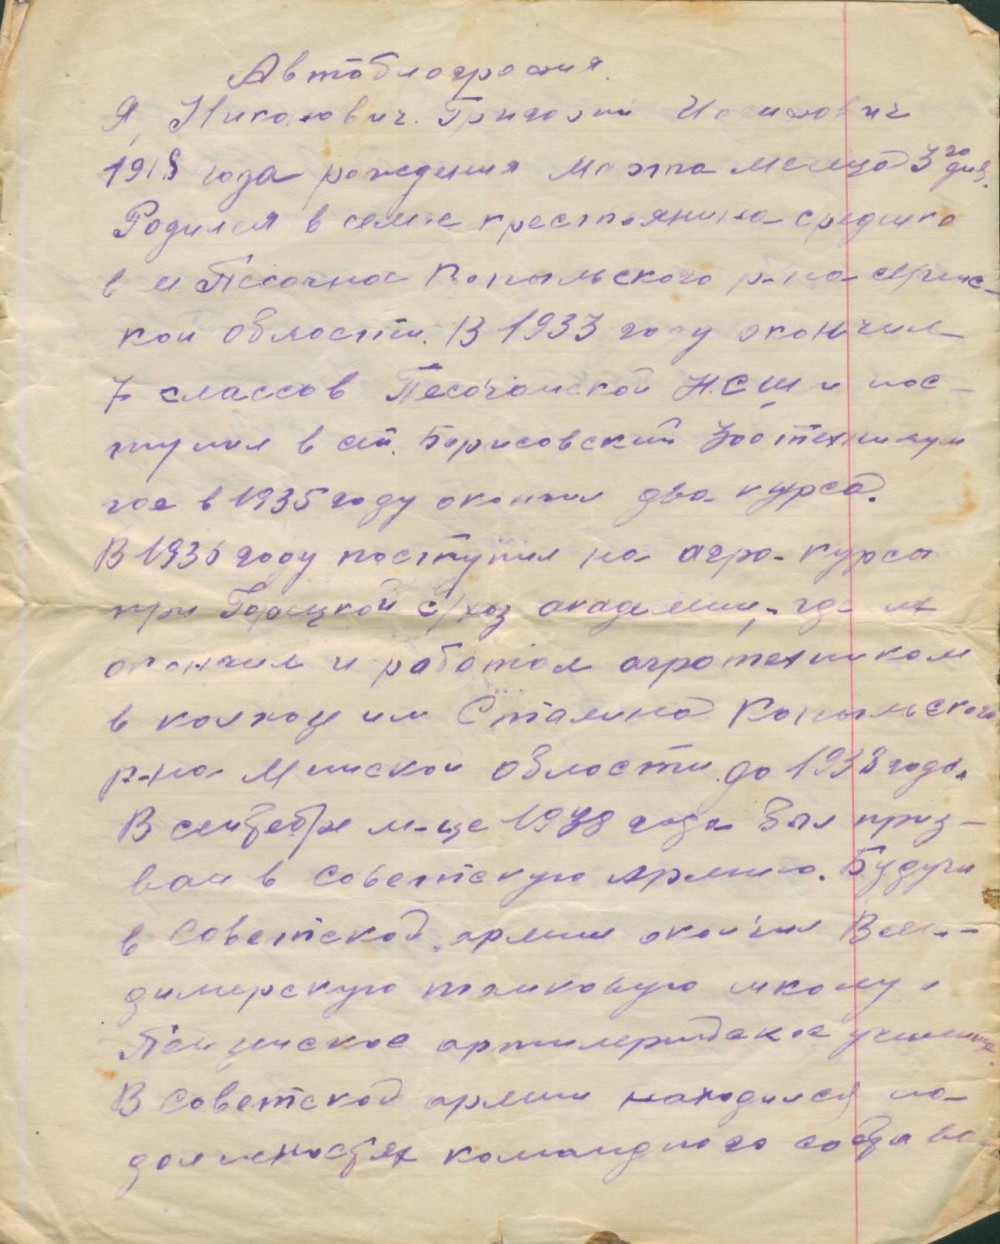 Автобиография.
Я, Николович Григорий Иосифович
1918 года рождения марта месяца 3го дня.
Родился в семье крестьянина-средняка
в м Песочное Копыльского р-на Минс-
кой области. В 1933 году окончил
7 классов Песочанской Н.С.Ш и пос-
тупил в Борисовский Зоотехникум
где в 1935 году окончил два курса.
В 1936 году поступил на агро-курсы
при Горецкой с/хоз академии, где их
окончил и работал агротехником
в колхозе им Сталина Копыльского
р-на Минской области до 1938 года.
В сентябре м-це 1938 года был приз-
ван в советскую армию. Будучи
в Советской армии окончил
танковую школу и
артилерийское училище.
В Советской армии находился на
должностях командного состава